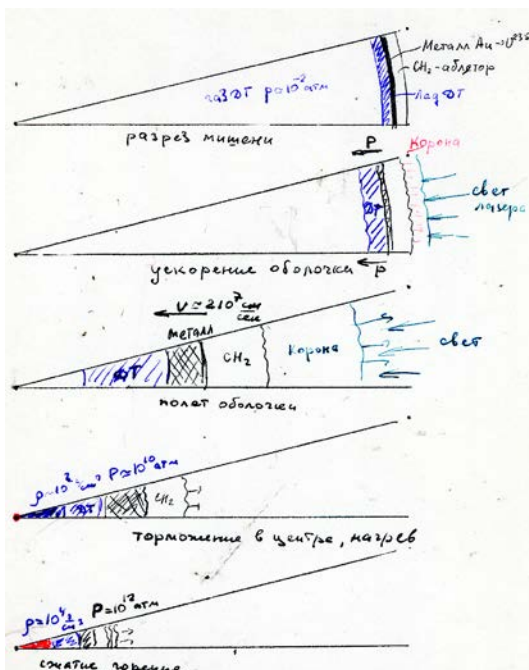 Металл Au → U²³⁸
CH₂-аблятор
газ DT p=10⁻² атм
Лед DT
разрез мишени
P
Корона
DT
свет
лазера
ускорение оболочки
P
V=2·10⁷ см/сек
металл
DT
CH₂
Корона
свет
полет оболочки
P≈10¹⁰ атм
DT
CH₂
торможение в центре, нагрев
P=10¹² атм
сжатие горение